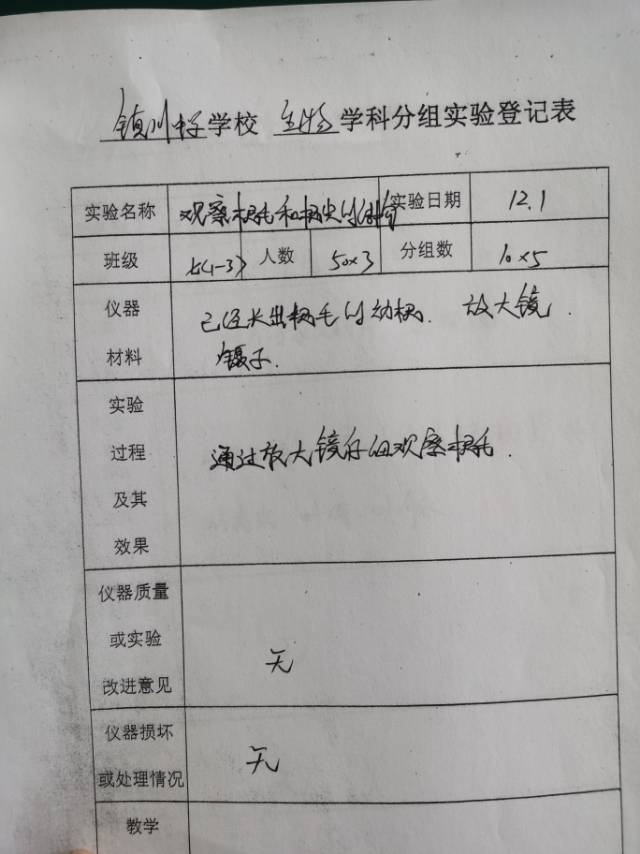 镇川中学学校 生物 学科分组实验登记表
实验名称 观察根毛和根尖的结构 实验日期 12.1
班级 七(1-3) 人数 50×3 分组数 10×5
仪器 已经长出根毛的幼根. 放大镜.
材料 镊子.
实验
过程 通过放大镜仔细观察根毛.
及其
效果
仪器质量
或实验
改进意见 无
仪器损坏 无
或处理情况
教学